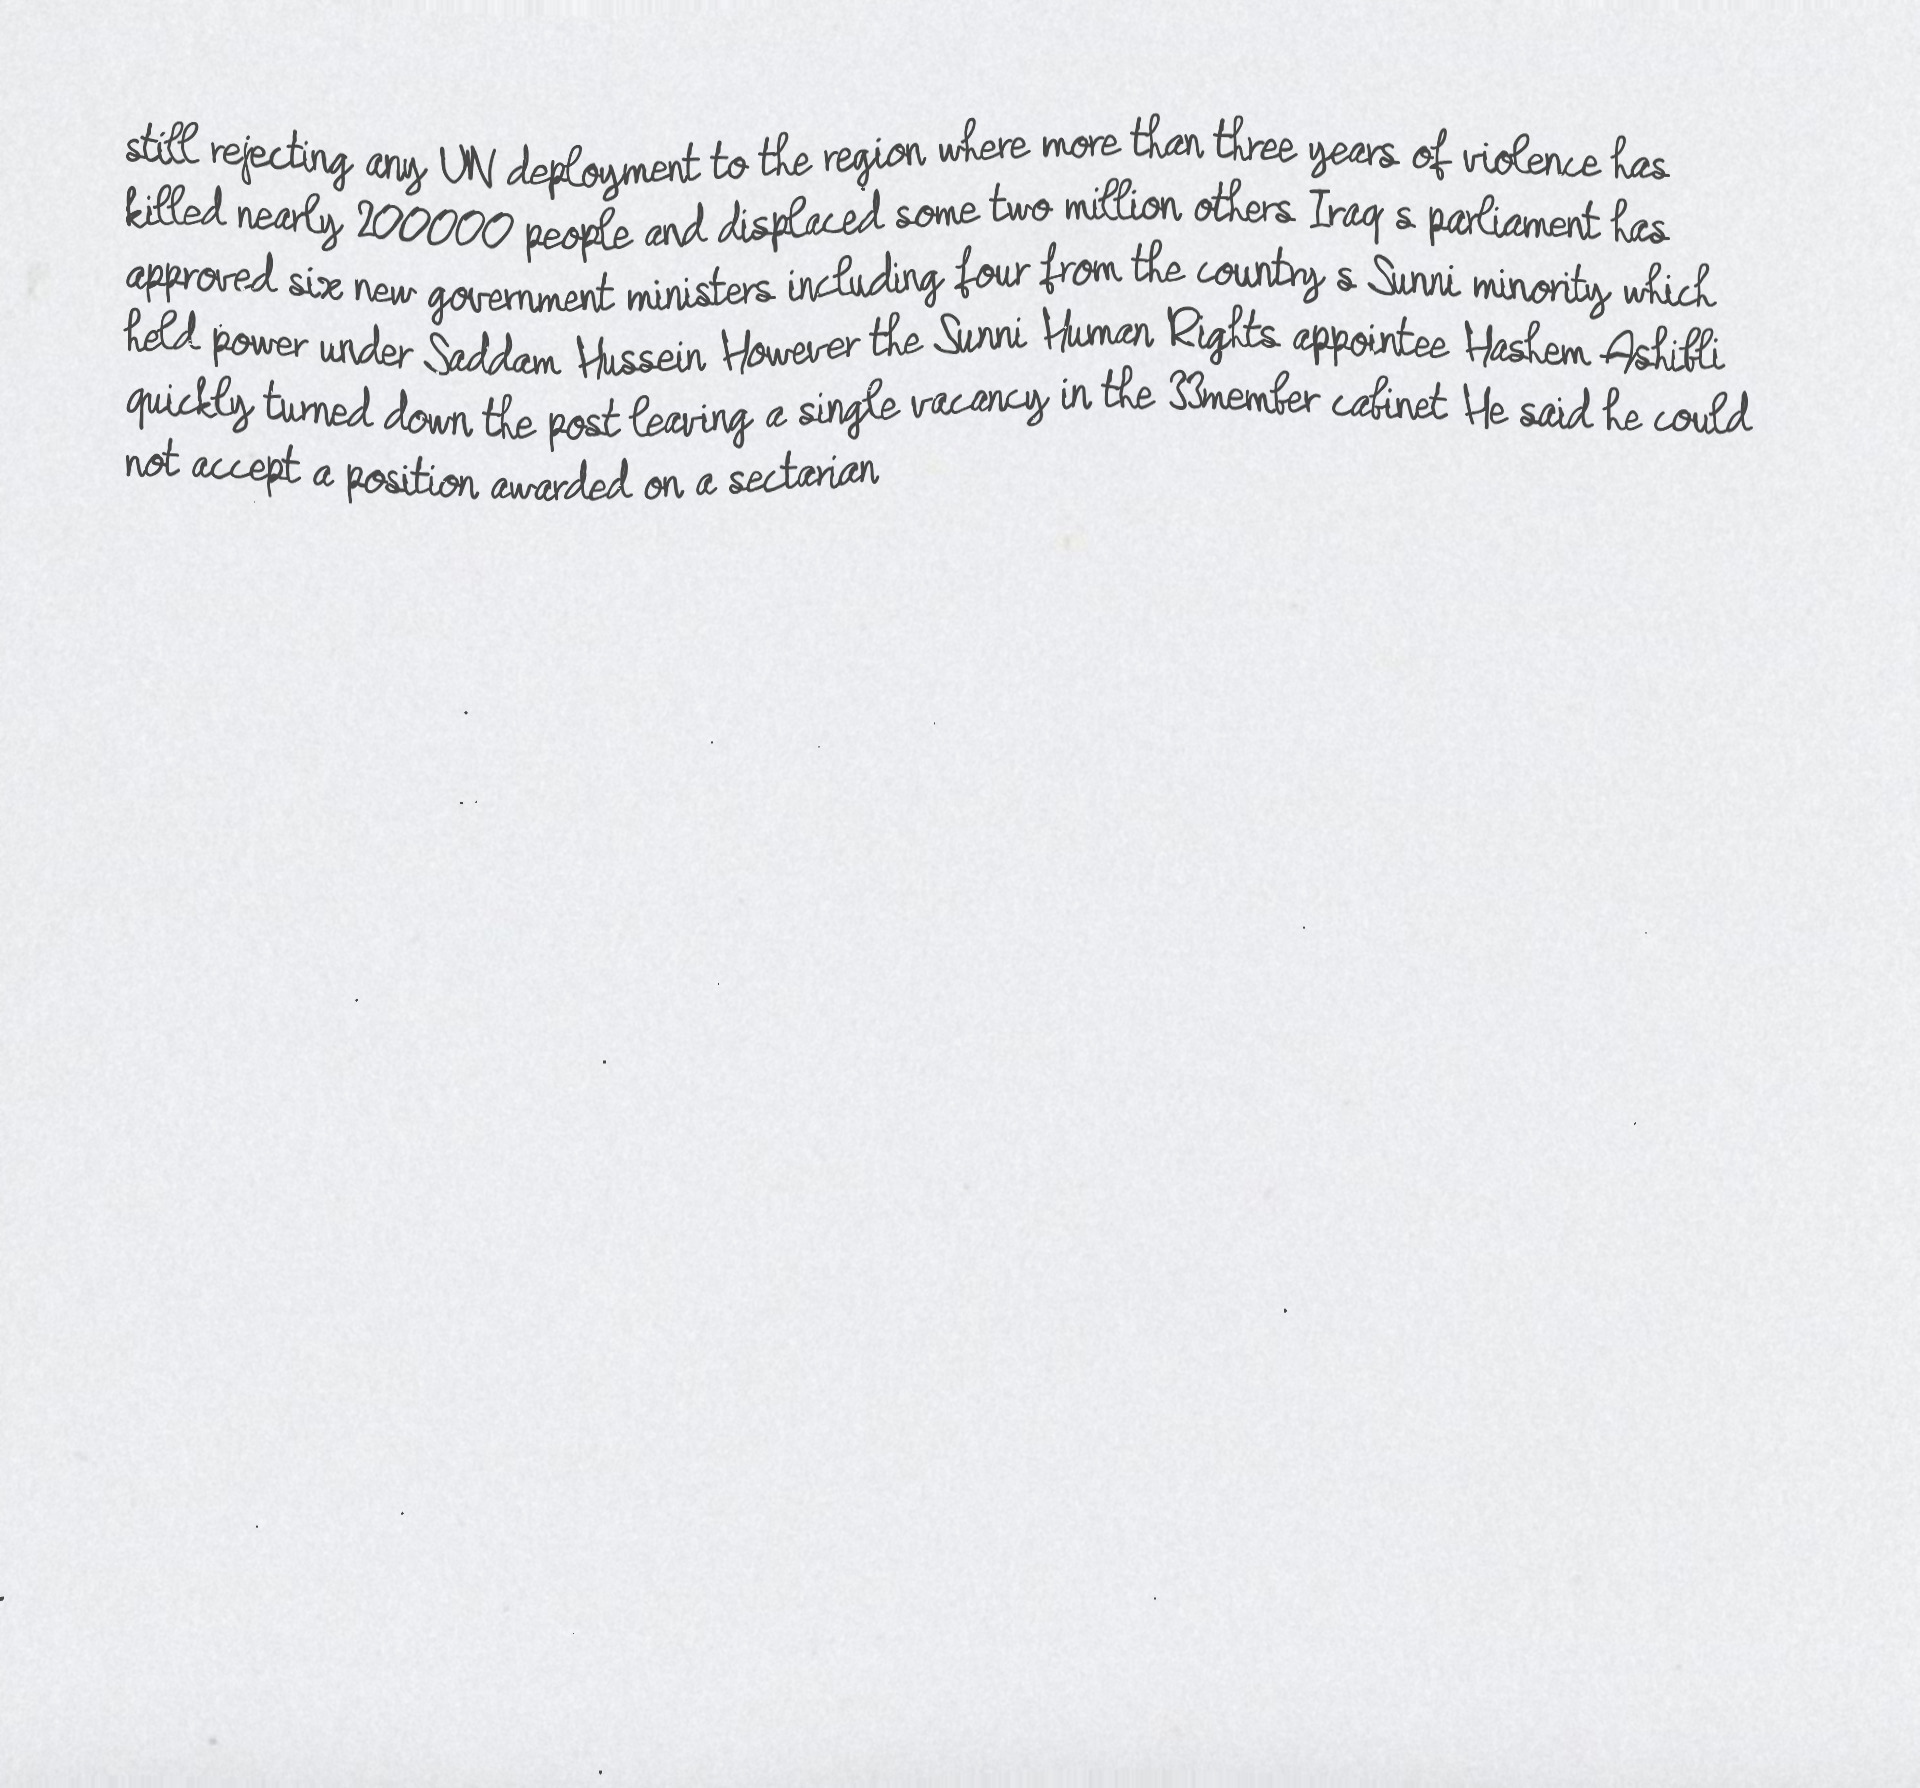 still rejecting any UN deployment to the region where more than three years of violence has
killed nearly 200000 people and displaced some two million others Iraq s parliament has
approved six new government ministers including four from the country s Sunni minority which
held power under Saddam Hussein However the Sunni Human Rights appointee Hashem Ashibli
quickly turned down the post leaving a single vacancy in the 33member cabinet He said he could
not accept a position awarded on a sectarian